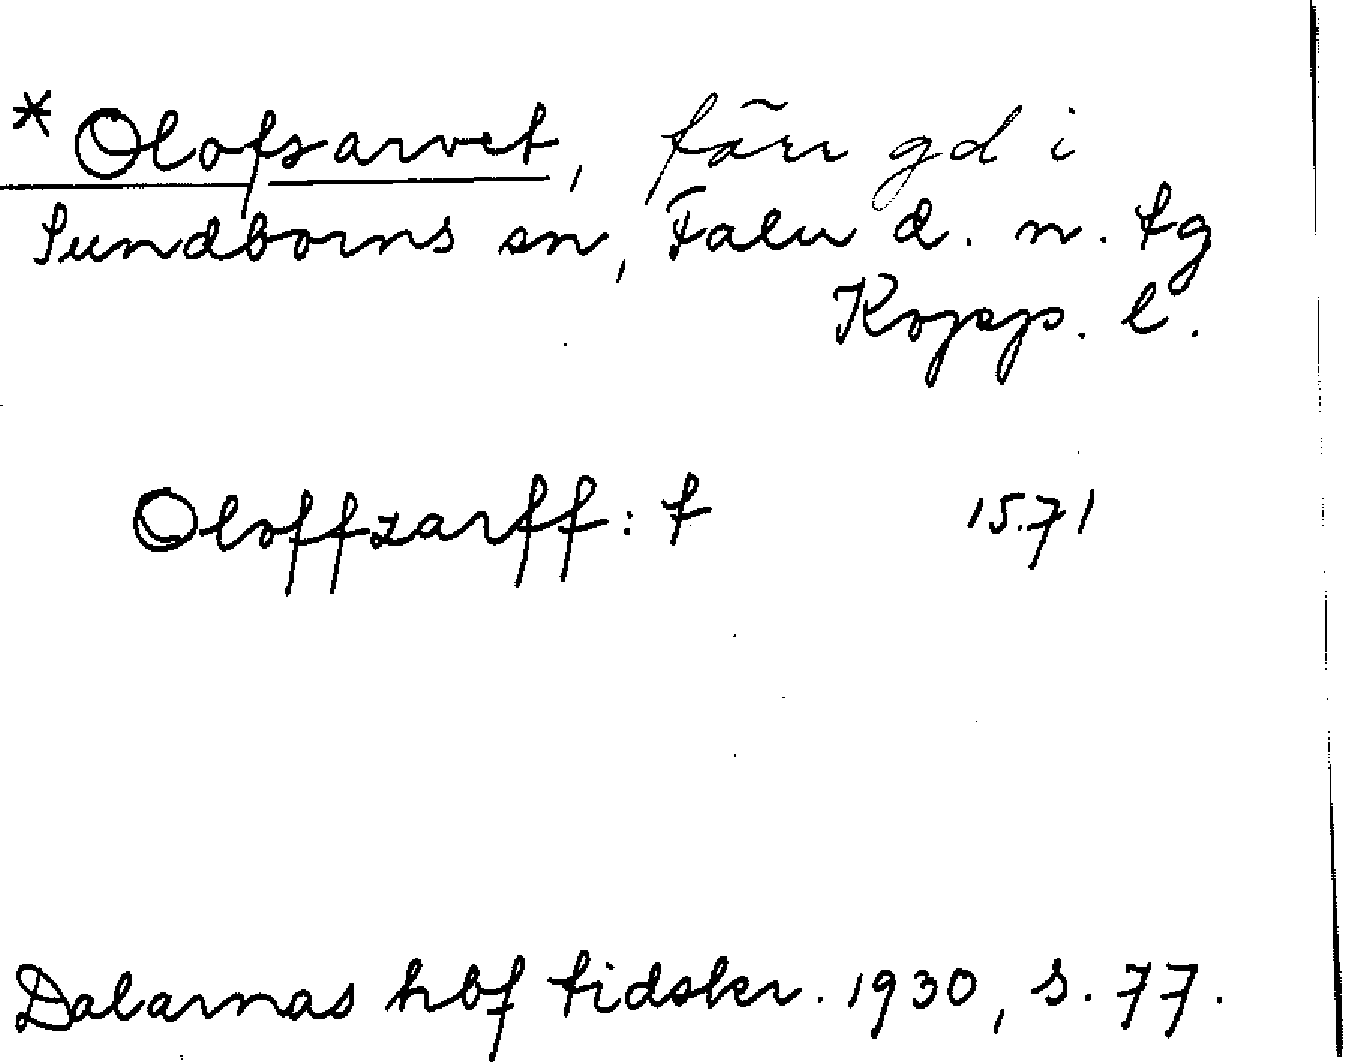 * Olofsarvet, förr gd i
Sundborns sn, Falu d. n. tg
Kopp. l.
Oloffzarff: t 1571
Dalarnas hbf tidskr. 1930, s. 77.